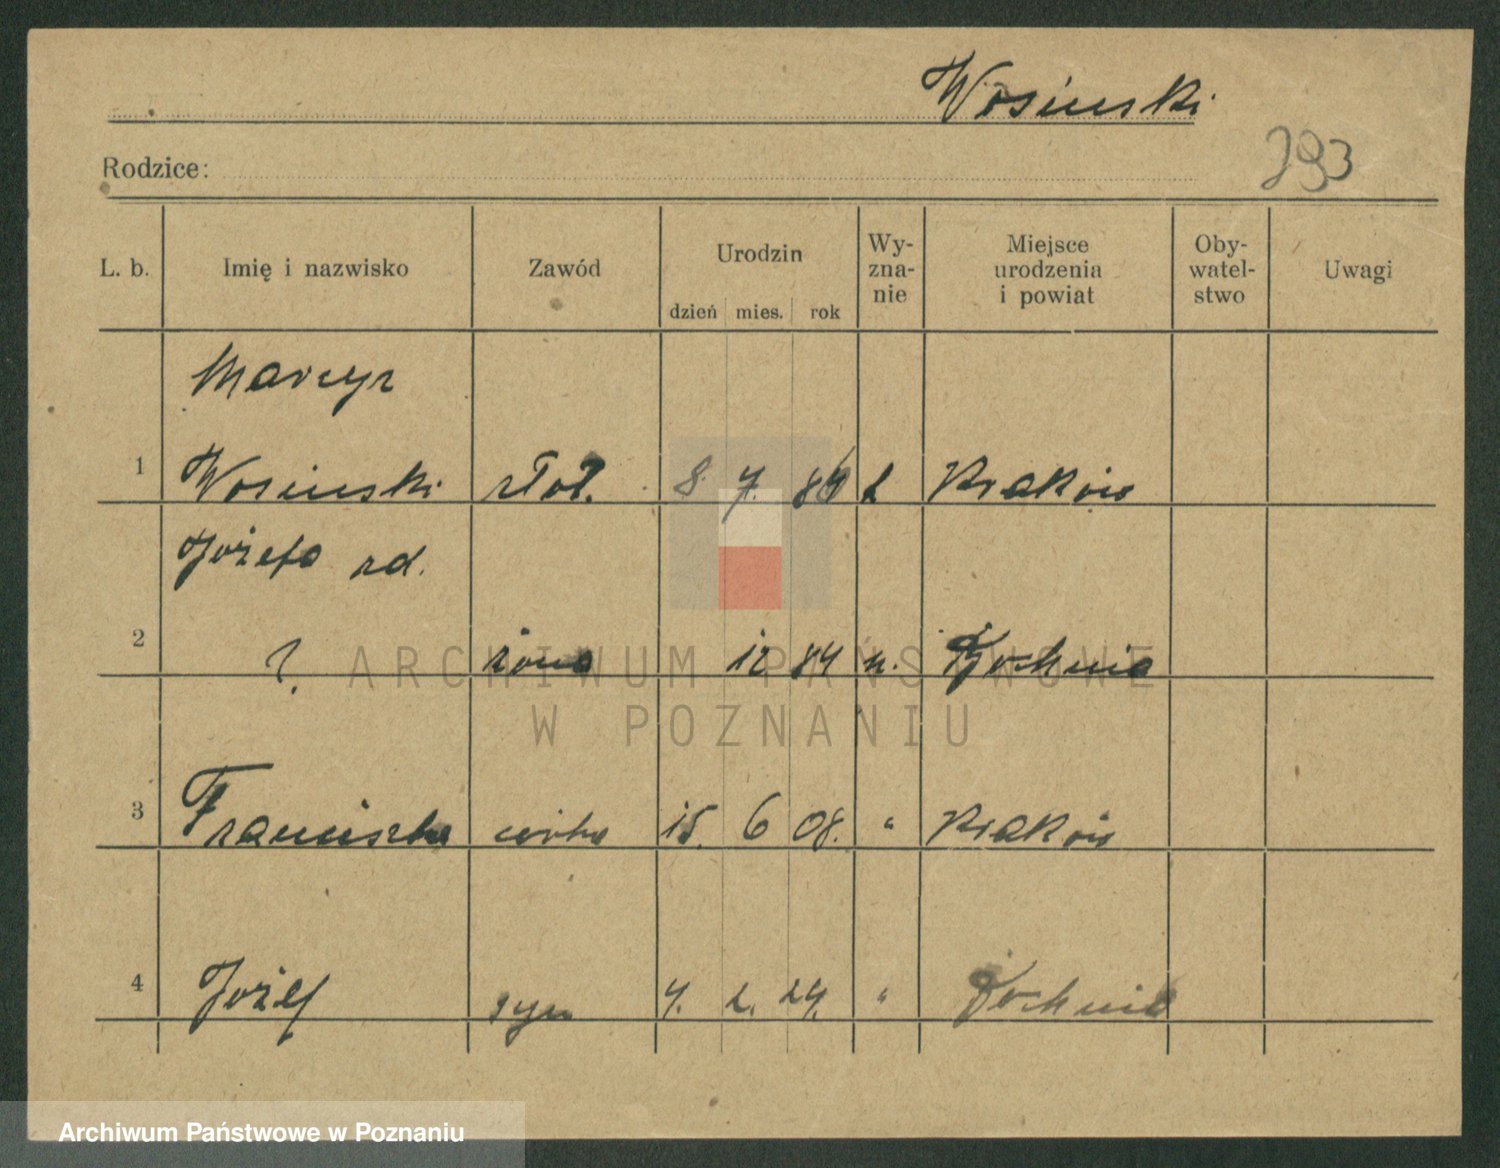 Wosiński
Rodzice:
793
L. b. Imię i nazwisko Zawód Urodzin dzień mies. rok Wy-zna-nie Miejsce urodzenia i powiat Oby-watel-stwo Uwagi
Marcyr
1 Wosiński 8. 7. Kraków
Józefa zd.
2 ? żona 12 84 Bochnia
3 Franciszka córka 15. 6 08. " Kraków
4 Józef syn 4. 2. 24. " Bochnia
ARCHIWUM PAŃSTWOWE
W POZNANIU
Archiwum Państwowe w Poznaniu